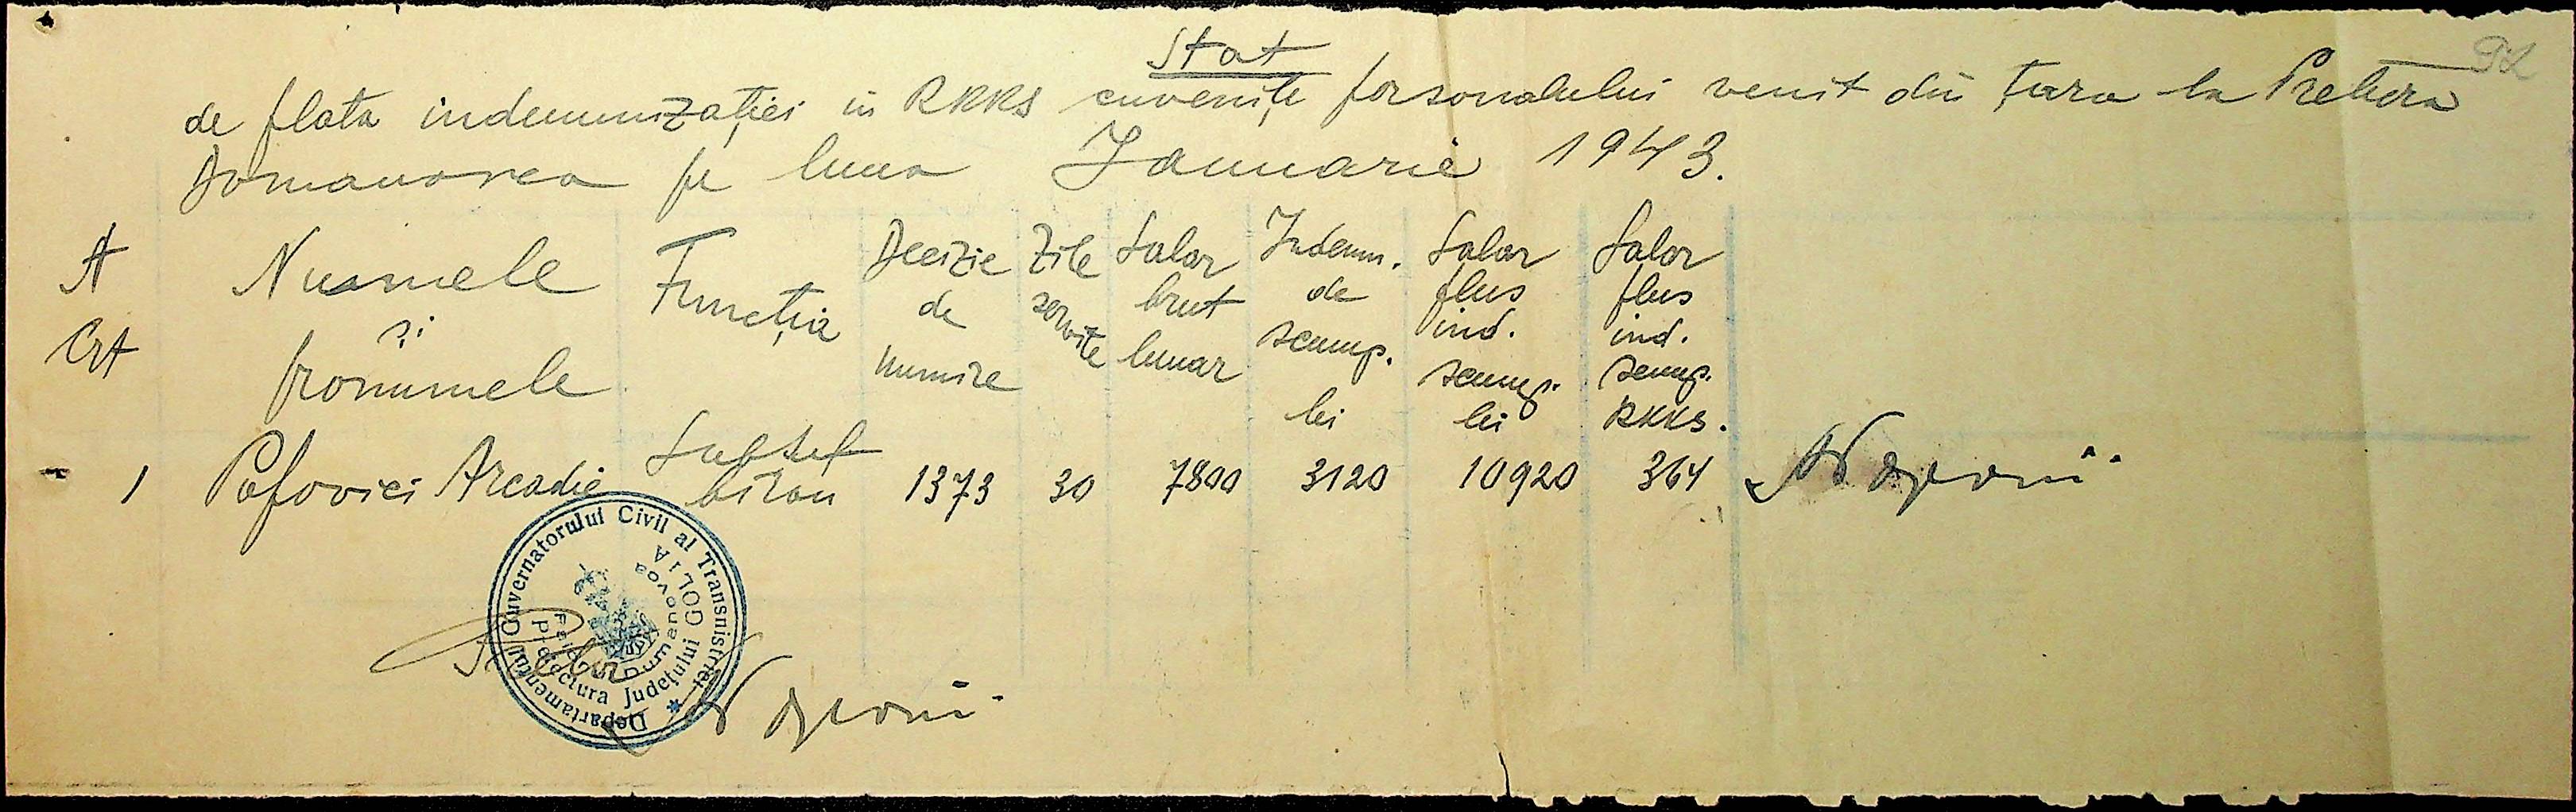 Stat
de plata indemnizației in RKKS cuvenite personalului venit din țara la Pretura
Domanovca pe luna Ianuarie 1943.
Crt
Numele
și
pronumele
Funcția
Decizie
de
numire
Zile
servite
Salar
brut
lunar
Indemn.
de
scump.
lei
Salar
plus
ind.
scump.
lei
Salar
plus
ind.
scump.
RKKS.
1 Popovici Arcadie Subșef birou 1373 30 7800 3120 10920 364
Departamentul Guvernatorului Civil al Transnistriei
Prefectura Județului GOLTA
Dumanovca
Pretor